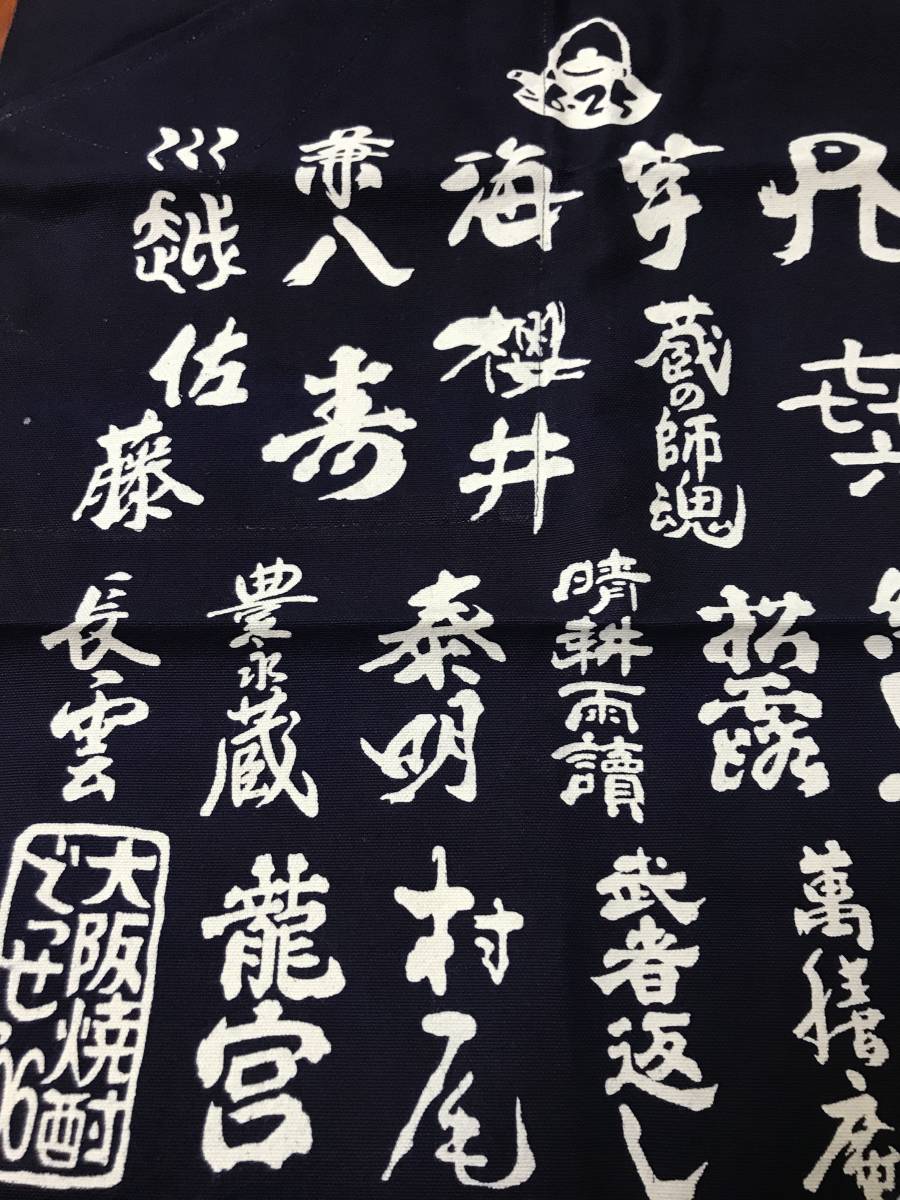 芋
海
兼八
川越
㐂六
蔵の師魂
櫻井
寿
佐藤
松露
晴耕雨讀
泰明
豊永蔵
長雲
萬膳庵
武者返し
村尾
龍宮
大阪焼酎
でっせ